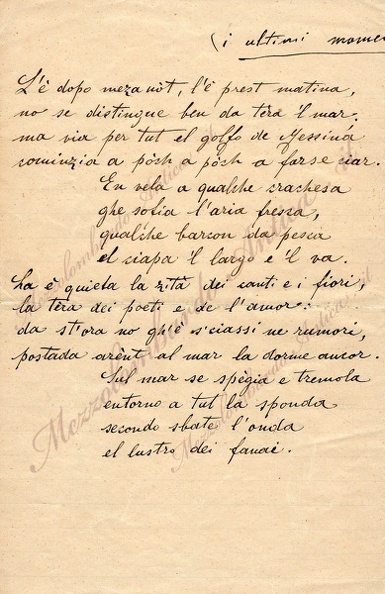 (i ultimi mome
L'è dopo meza nòt, l'è prest matina,
no se distingue ben da tèra 'l mar.
ma via per tut el golfo de Messina
cominzia a pòsh a pòsh a farse ciar.
En vela a qualche srachesa
ghe sofia l'aria fressa,
qualche barcon da pesca
el ciapa 'l largo e 'l va.
La è quieta la zità dei canti e i fiori,
la tèra dei poeti e de l'amor:
da st'ora no gh'è s'ciassi ne rumori,
postada arènt al mar la dorme ancor.
Sul mar se spègia e tremola
entorno a tut la sponda
secondo sbate l'onda
el lustro dei fanai.
Mezzolombardo Antica .it
Mezzolombardo Antica .it